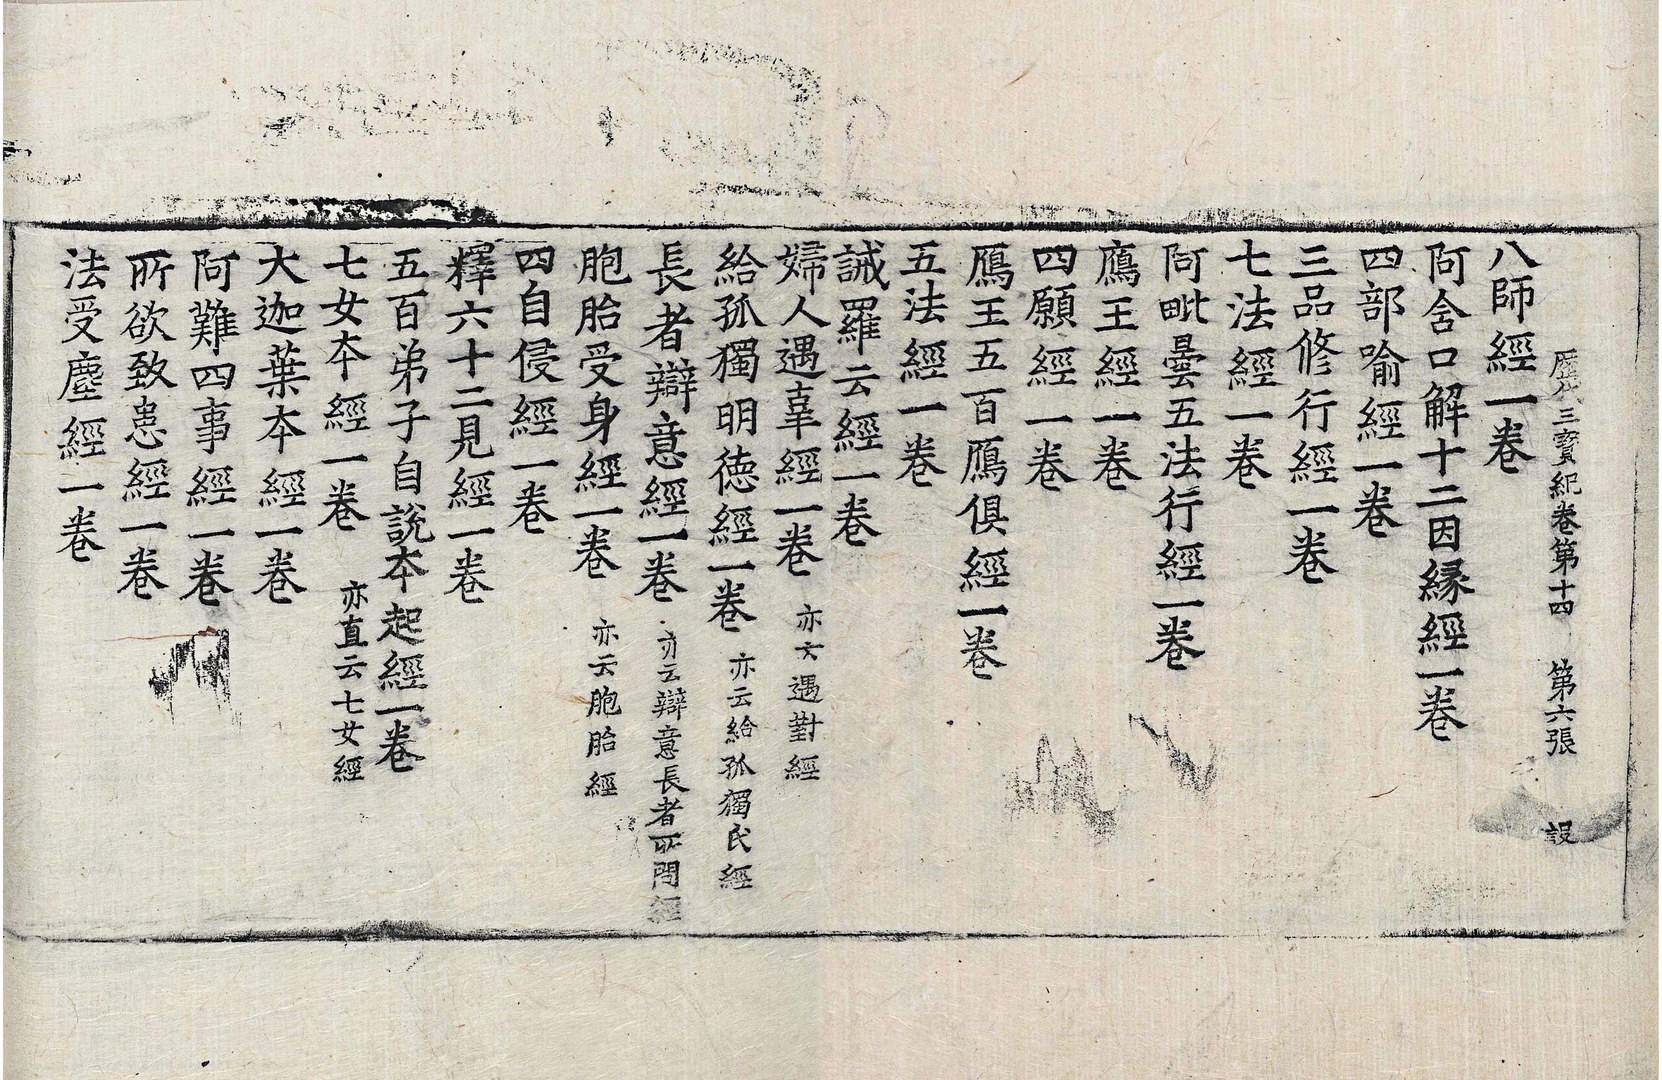 歷代三寶紀卷第十四　第六張　設
八師經一卷
阿含口解十二因緣經一卷
四部喻經一卷
三品修行經一卷
七法經一卷
阿毗曇五法行經一卷
鴈王經一卷
四願經一卷
鴈王五百鴈俱經一卷
五法經一卷
誡羅云經一卷
婦人遇辜經一卷　亦云遇對經
給孤獨明德經一卷　亦云給孤獨氏經
長者辯意經一卷　亦云辯意長者所問經
胞胎受身經一卷　亦云胞胎經
四自侵經一卷
釋六十二見經一卷
五百弟子自說本起經一卷
七女本經一卷　亦直云七女經
大迦葉本經一卷
阿難四事經一卷
所欲致患經一卷
法受塵經一卷